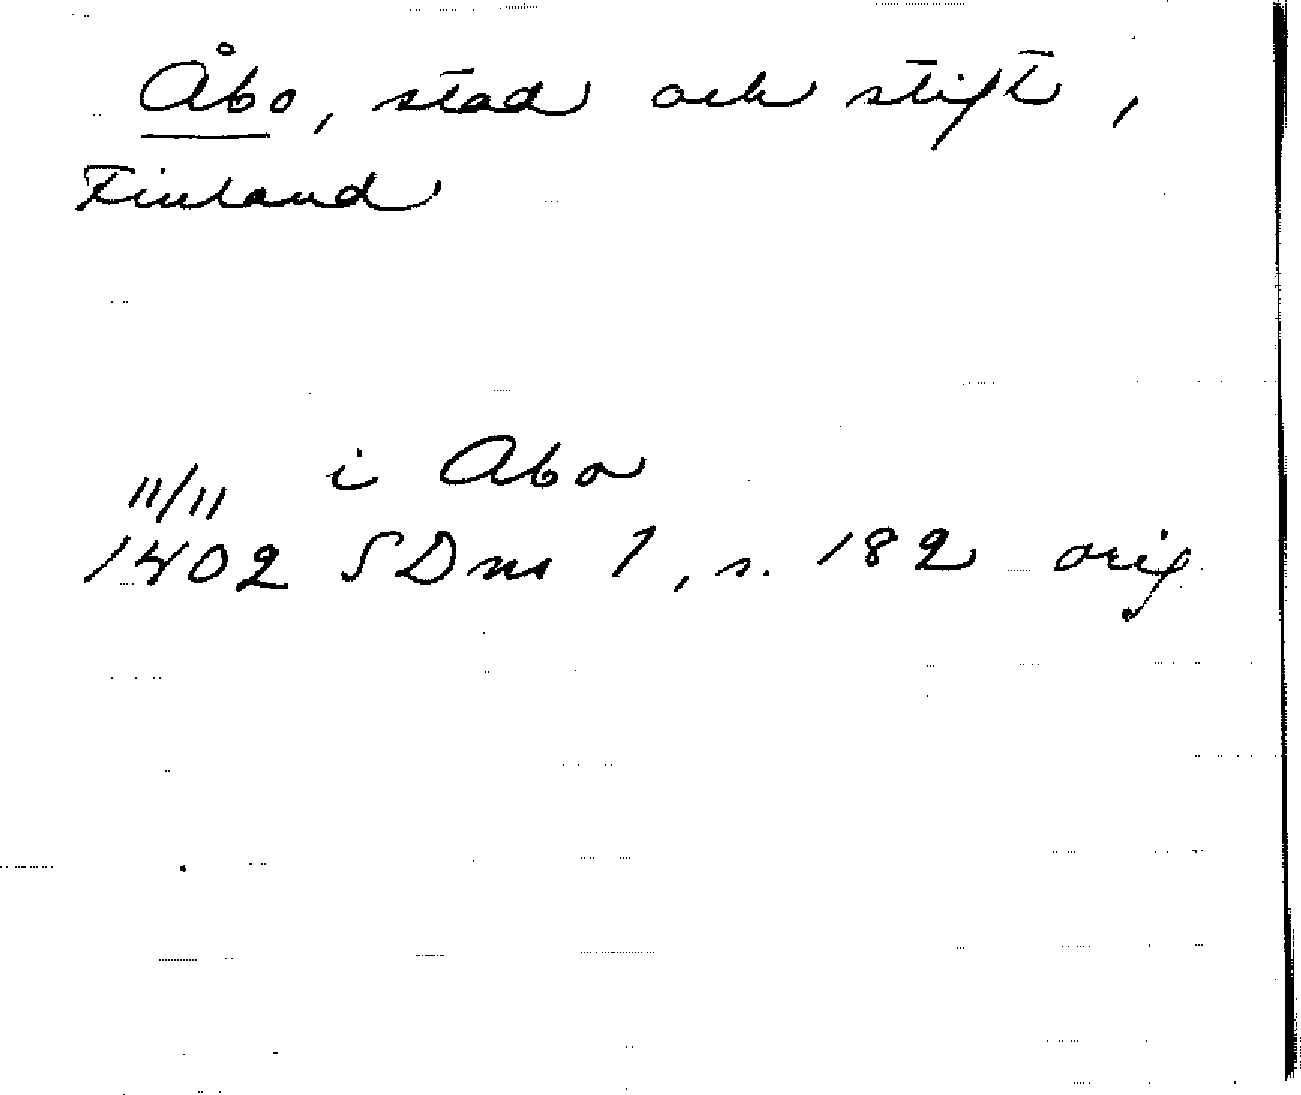 Åbo, stad och stift,
Finland
11/11 i Abo
1402 SDns 1, s. 182 orig